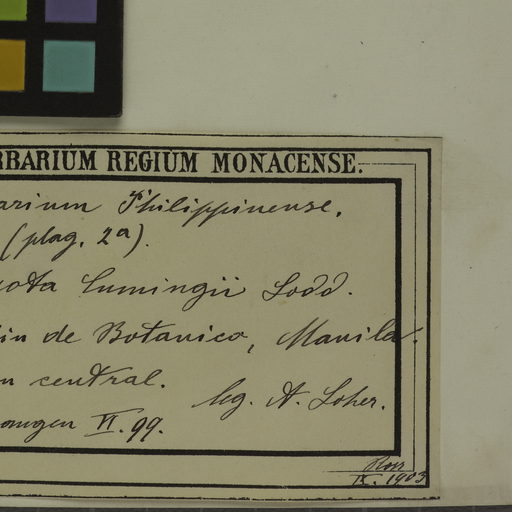 RBARIUM REGIUM MONACENSE.
arium Philippinense.
(plag. 2a).
ota Cumingii Lodd.
in de Botanico, Manila.
n central.
leg. A. Loher.
angen VI. 99.
Ross
IX. 1903